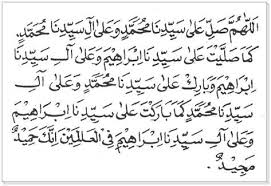 اَللّٰهُمَّ صَلِّ عَلٰى سَيِّدِنَا مُحَمَّدٍ وَعَلٰى آلِ سَيِّدِنَا مُحَمَّدٍ.
كَمَا صَلَّيْتَ عَلٰى سَيِّدِنَا اِبْرَاهِيْمَ وَعَلٰى آلِ سَيِّدِنَا
اِبْرَاهِيْمَ وَبَارِكْ عَلٰى سَيِّدِنَا مُحَمَّدٍ وَعَلٰى آلِ
سَيِّدِنَا مُحَمَّدٍ كَمَا بَارَكْتَ عَلٰى سَيِّدِنَا اِبْرَاهِيْمَ
وَعَلٰى آلِ سَيِّدِنَا اِبْرَاهِيْمَ فِى الْعَالَمِيْنَ اِنَّكَ حَمِيْدٌ
مَجِيْدٌ.